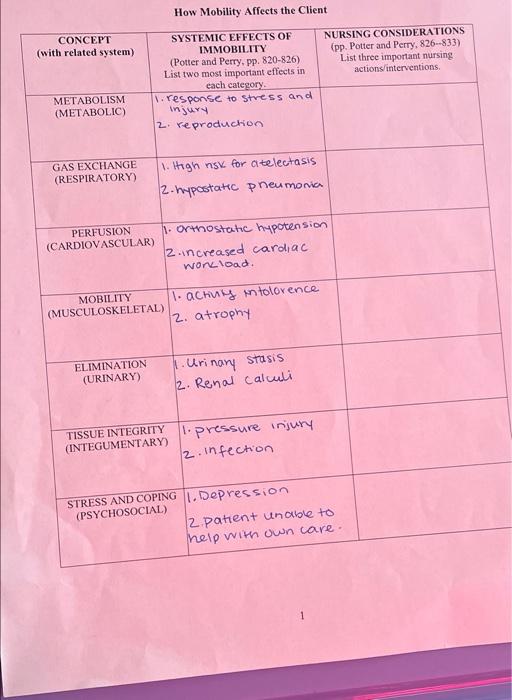 How Mobility Affects the Client
CONCEPT
(with related system)
SYSTEMIC EFFECTS OF
IMMOBILITY
(Potter and Perry, pp. 820-826)
List two most important effects in
each category.
NURSING CONSIDERATIONS
(pp. Potter and Perry, 826--833)
List three important nursing
actions/interventions.
METABOLISM
(METABOLIC)
1. response to stress and
injury
2. reproduction
GAS EXCHANGE
(RESPIRATORY)
1. High risk for atelectasis
2. hypostatic pneumonia
PERFUSION
(CARDIOVASCULAR)
1. orthostatic hypotension
2. increased cardiac
workload.
MOBILITY
(MUSCULOSKELETAL)
1. activity intolorence
2. atrophy
ELIMINATION
(URINARY)
1. Urinary stasis
2. Renal calculi
TISSUE INTEGRITY
(INTEGUMENTARY)
1. pressure injury
2. infection
STRESS AND COPING
(PSYCHOSOCIAL)
1. Depression
2. patient unable to
help with own care.
1